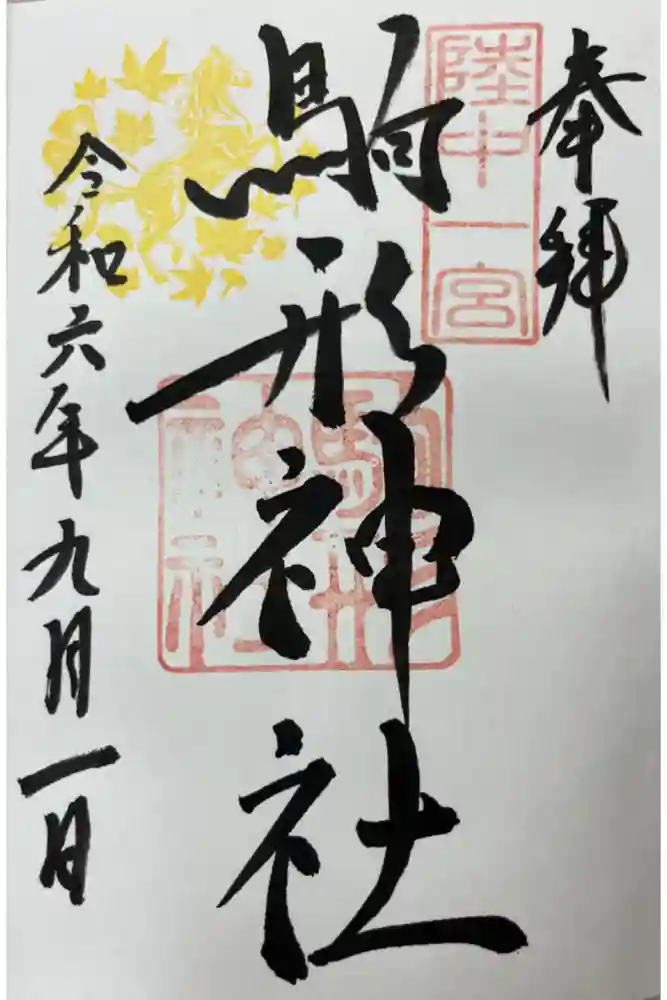 奉拝
陸中一宮
駒形神社
駒形神社
令和六年九月一日